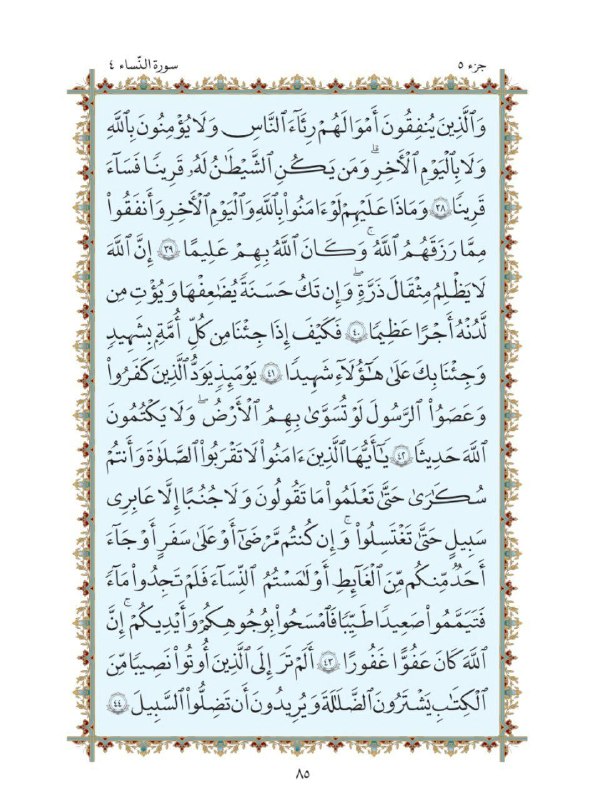 جزء ٥
سورة النّساء ٤
وَٱلَّذِينَ يُنفِقُونَ أَمْوَٰلَهُمْ رِئَآءَ ٱلنَّاسِ وَلَا يُؤْمِنُونَ بِٱللَّهِ
وَلَا بِٱلْيَوْمِ ٱلْأَخِرِ ۗ وَمَن يَكُنِ ٱلشَّيْطَٰنُ لَهُۥ قَرِينًا فَسَآءَ
قَرِينًا ٣٨ وَمَاذَا عَلَيْهِمْ لَوْ ءَامَنُوا۟ بِٱللَّهِ وَٱلْيَوْمِ ٱلْأَخِرِ وَأَنفَقُوا۟
مِمَّا رَزَقَهُمُ ٱللَّهُ ۚ وَكَانَ ٱللَّهُ بِهِمْ عَلِيمًا ٣٩ إِنَّ ٱللَّهَ
لَا يَظْلِمُ مِثْقَالَ ذَرَّةٍ ۖ وَإِن تَكُ حَسَنَةً يُضَٰعِفْهَا وَيُؤْتِ مِن
لَّدُنْهُ أَجْرًا عَظِيمًا ٤٠ فَكَيْفَ إِذَا جِئْنَا مِن كُلِّ أُمَّةٍۭ بِشَهِيدٍ
وَجِئْنَا بِكَ عَلَىٰ هَٰٓؤُلَآءِ شَهِيدًا ٤١ يَوْمَئِذٍ يَوَدُّ ٱلَّذِينَ كَفَرُوا۟
وَعَصَوُا۟ ٱلرَّسُولَ لَوْ تُسَوَّىٰ بِهِمُ ٱلْأَرْضُ ۖ وَلَا يَكْتُمُونَ
ٱللَّهَ حَدِيثًا ٤٢ يَٰٓأَيُّهَا ٱلَّذِينَ ءَامَنُوا۟ لَا تَقْرَبُوا۟ ٱلصَّلَوٰةَ وَأَنتُمْ
سُكَٰرَىٰ حَتَّىٰ تَعْلَمُوا۟ مَا تَقُولُونَ وَلَا جُنُبًا إِلَّا عَابِرِى
سَبِيلٍ حَتَّىٰ تَغْتَسِلُوا۟ ۚ وَإِن كُنتُم مَّرْضَىٰٓ أَوْ عَلَىٰ سَفَرٍ أَوْ جَآءَ
أَحَدٌ مِّنكُم مِّنَ ٱلْغَآئِطِ أَوْ لَٰمَسْتُمُ ٱلنِّسَآءَ فَلَمْ تَجِدُوا۟ مَآءً
فَتَيَمَّمُوا۟ صَعِيدًا طَيِّبًا فَٱمْسَحُوا۟ بِوُجُوهِكُمْ وَأَيْدِيكُمْ ۗ إِنَّ
ٱللَّهَ كَانَ عَفُوًّا غَفُورًا ٤٣ أَلَمْ تَرَ إِلَى ٱلَّذِينَ أُوتُوا۟ نَصِيبًا مِّنَ
ٱلْكِتَٰبِ يَشْتَرُونَ ٱلضَّلَٰلَةَ وَيُرِيدُونَ أَن تَضِلُّوا۟ ٱلسَّبِيلَ ٤٤
٨٥